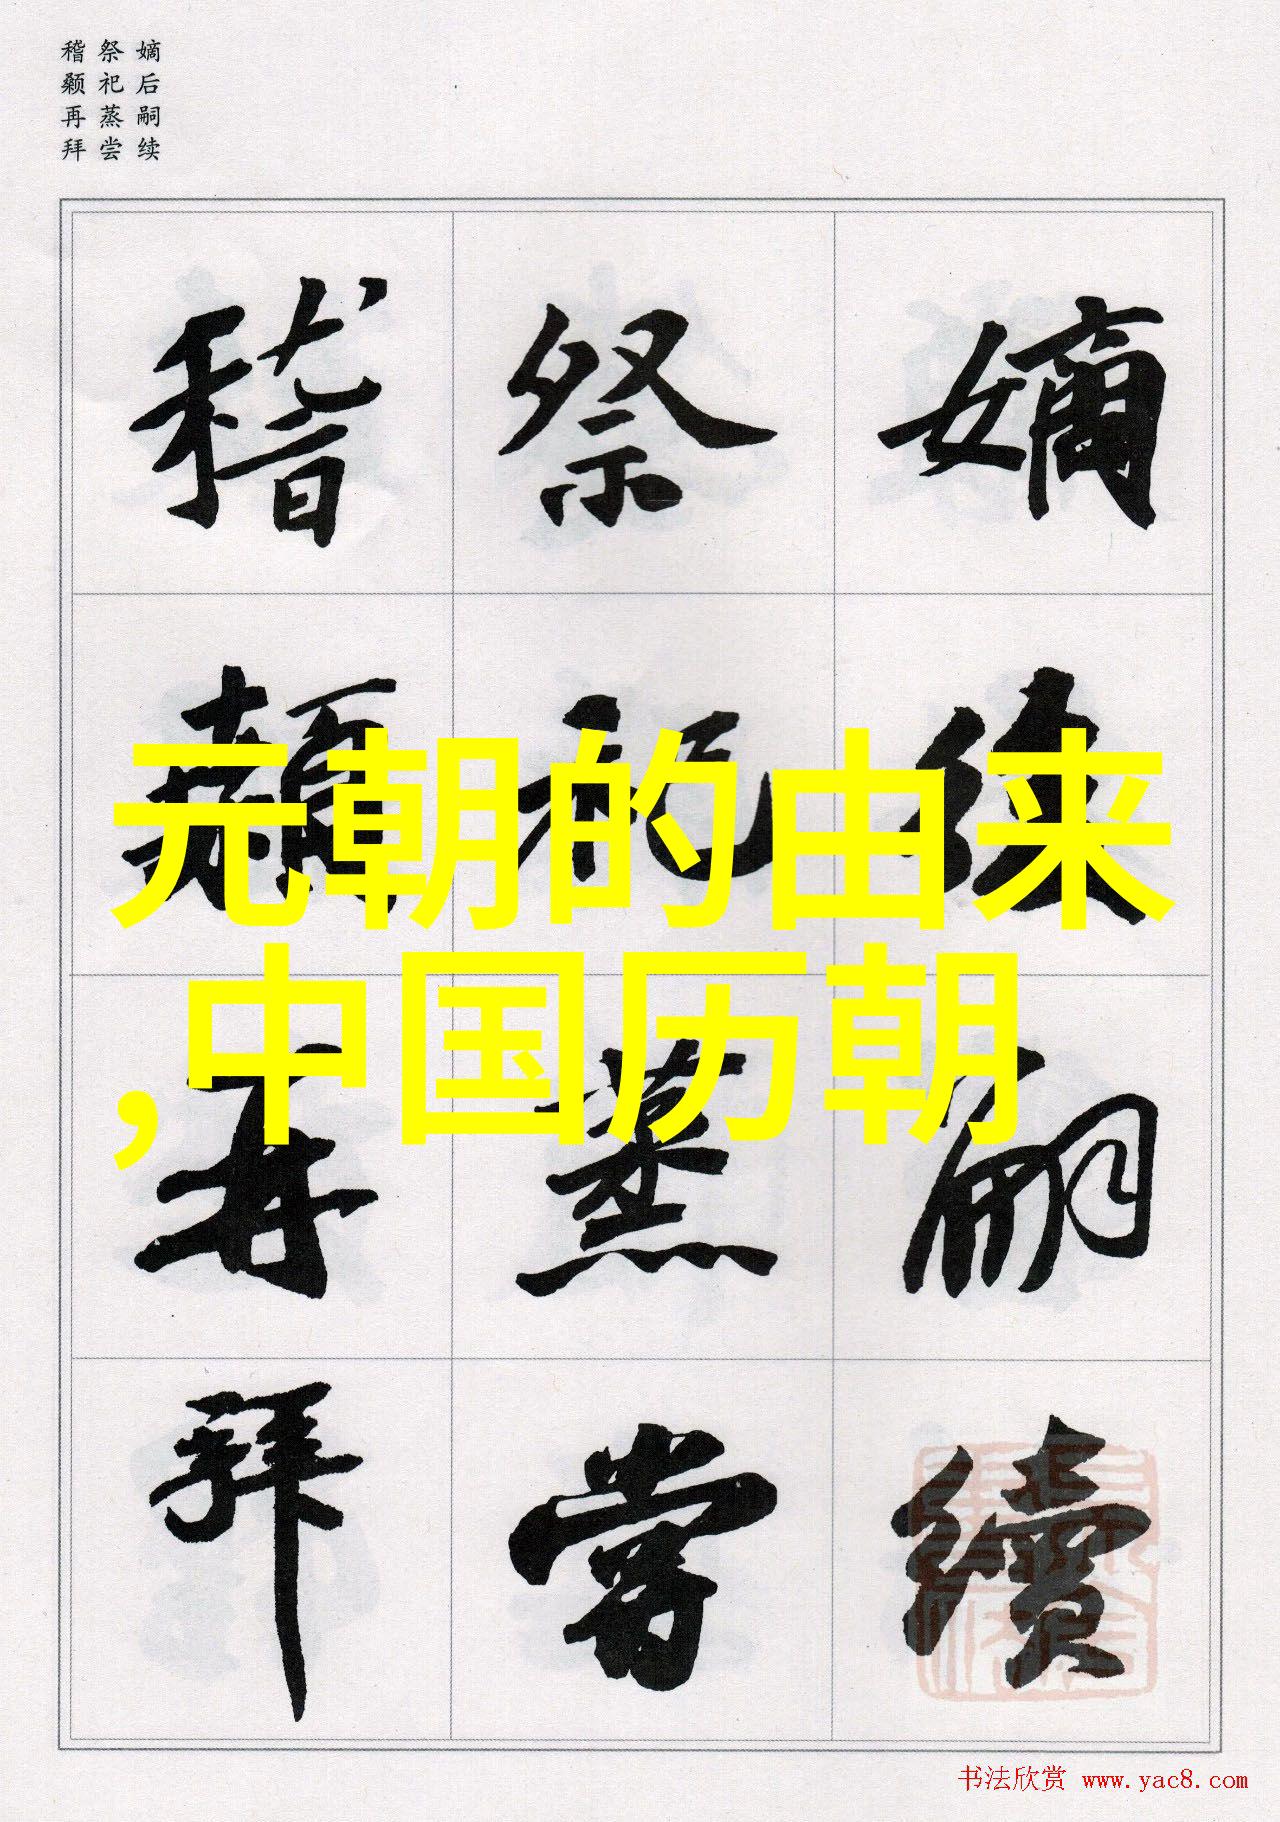 嫡后嗣续
祭祀蒸尝
稽颡再拜
嫡後嗣續
祭祀蒸嘗
稽顙再拜
元朝的由来
,中国历朝
书法欣赏 www.yac8.com